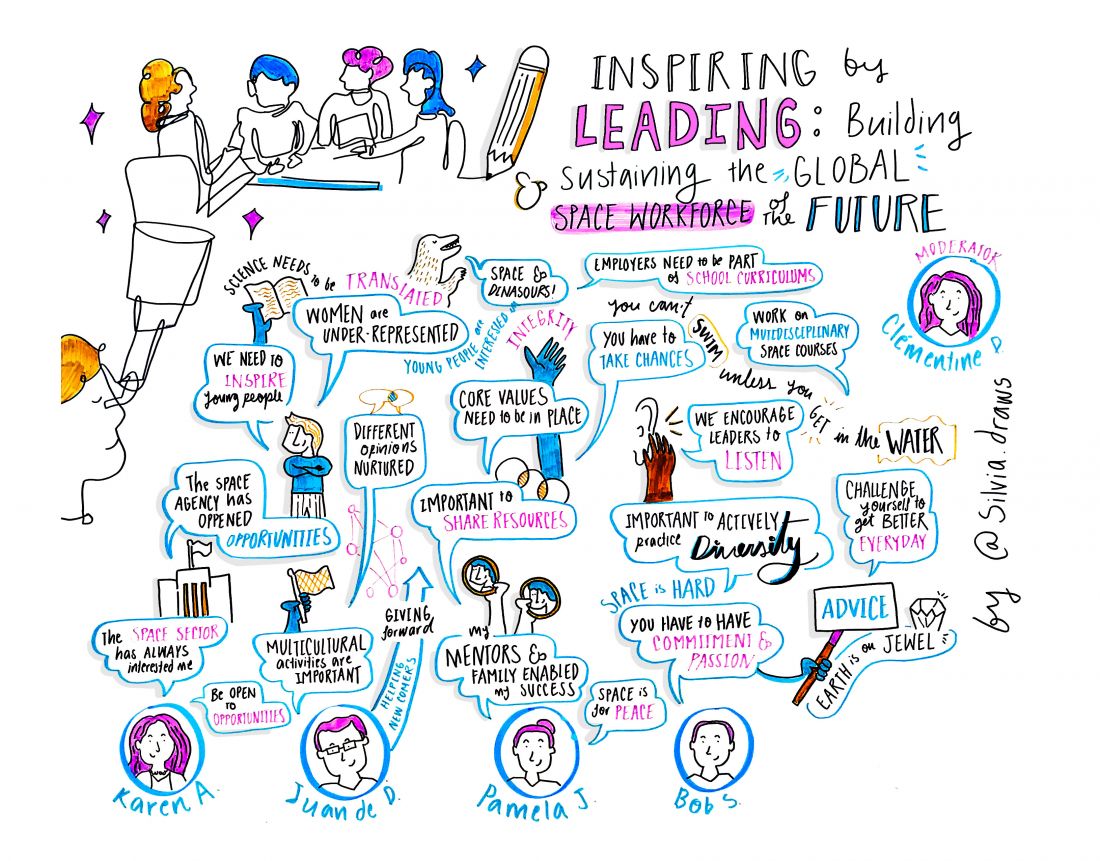 INSPIRING by
LEADING: Building
& sustaining the GLOBAL
SPACE WORKFORCE of the FUTURE
MODERATOR
Clémentine D.
SCIENCE NEEDS to be TRANSLATED
SPACE &
DINASOURS!
YOUNG PEOPLE are
INTERESTED on
EMPLOYERS NEED to be PART
of SCHOOL CURRICULUMS
WOMEN are
UNDER-REPRESENTED
WE NEED to
INSPIRE
young people
INTEGRITY
CORE VALUES
NEED to be IN PLACE
You have to
TAKE CHANCES
WORK on
MULTIDESCIPLINARY
SPACE COURSES
you can't
SWIM
unless you
GET
in the WATER
DIFFERENT
opinions
NURTURED
WE ENCOURAGE
LEADERS to
LISTEN
The SPACE
AGENCY has
OPPENED
OPPORTUNITIES
IMPORTANT to
SHARE RESOURCES
IMPORTANT to ACTIVELY
practice Diversity
CHALLENGE
yourself to
get BETTER
EVERYDAY
The SPACE SECTOR
has ALWAYS
interested me
MULTICULTURAL
activities are
IMPORTANT
GIVING
forward
HELPING
NEW COMERS
my
MENTORS &
FAMILY ENABLED
my SUCCESS
SPACE is HARD
YOU HAVE to HAVE
COMMITMENT &
PASSION
ADVICE
EARTH is on JEWEL
Be OPEN
to
OPPORTUNITIES
SPACE is
for PEACE
Karen A.
Juan de D.
Pamela J.
Bob S.
by @Silvia.draws